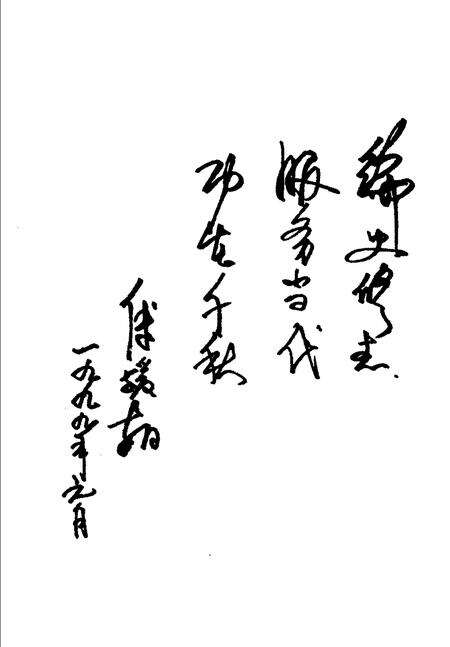 编史修志
服务当代
功在千秋
一九九九年元月